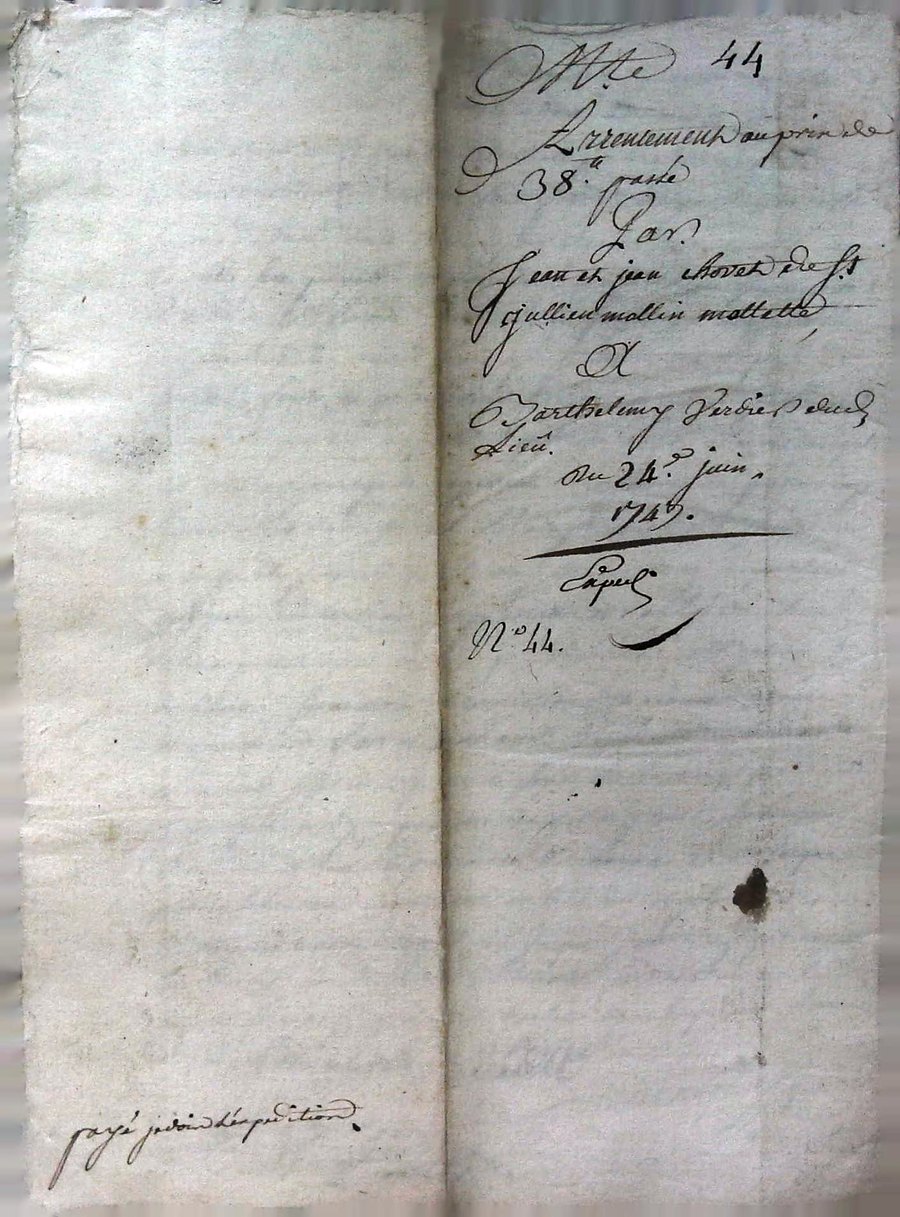 Mte 44
Arrentement au prix de
38.ᵗᵗ passé
Par
Jean et jean chovet de St
jullien mollin mollette,
A
Barthelemy Verdier dud
Lieû.
du 24.e juin
1747.
No 44.
payé je dois l'éxpedition